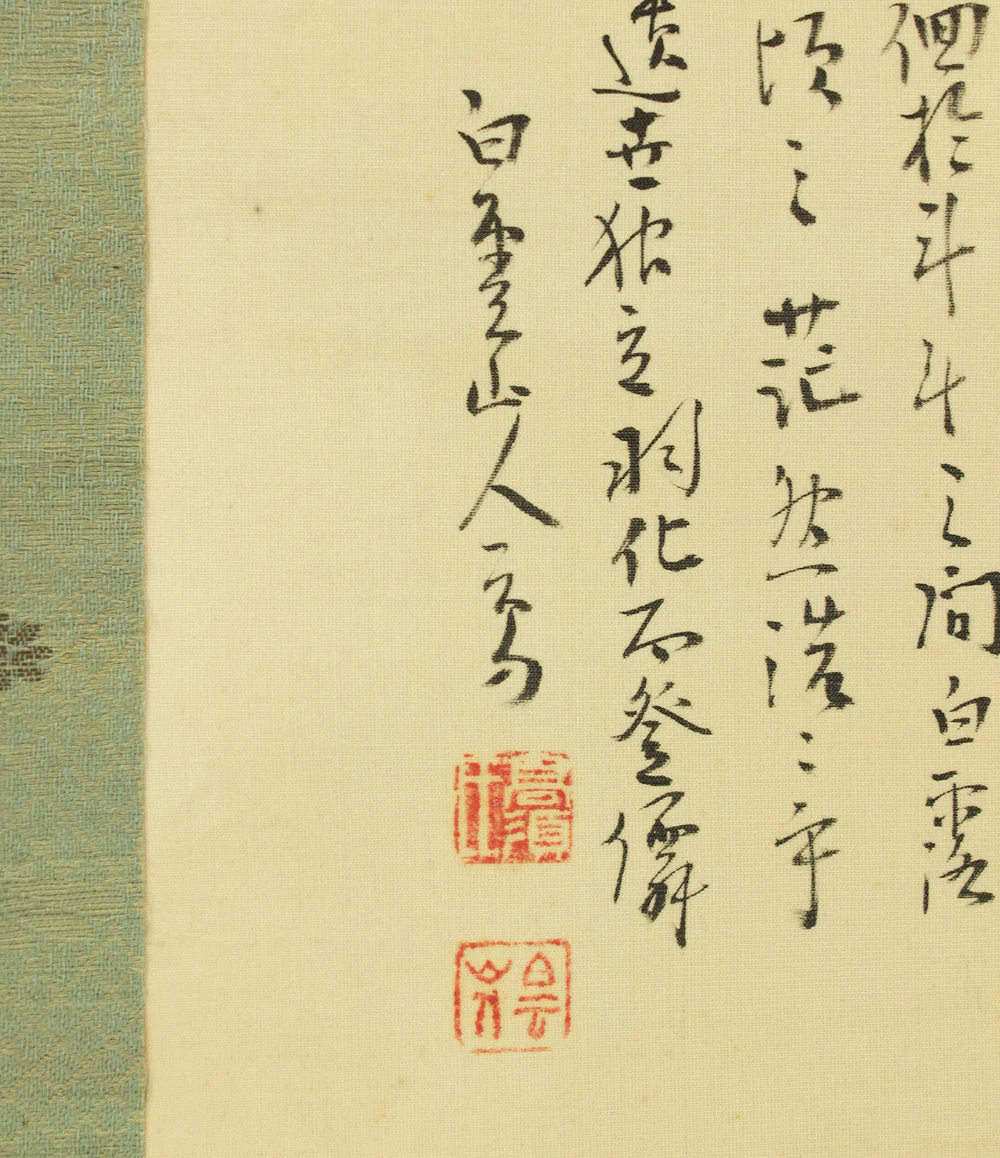 徊於斗牛之間白露
頃之茫然浩〻乎
遺世独立羽化而登僊
白雲山人